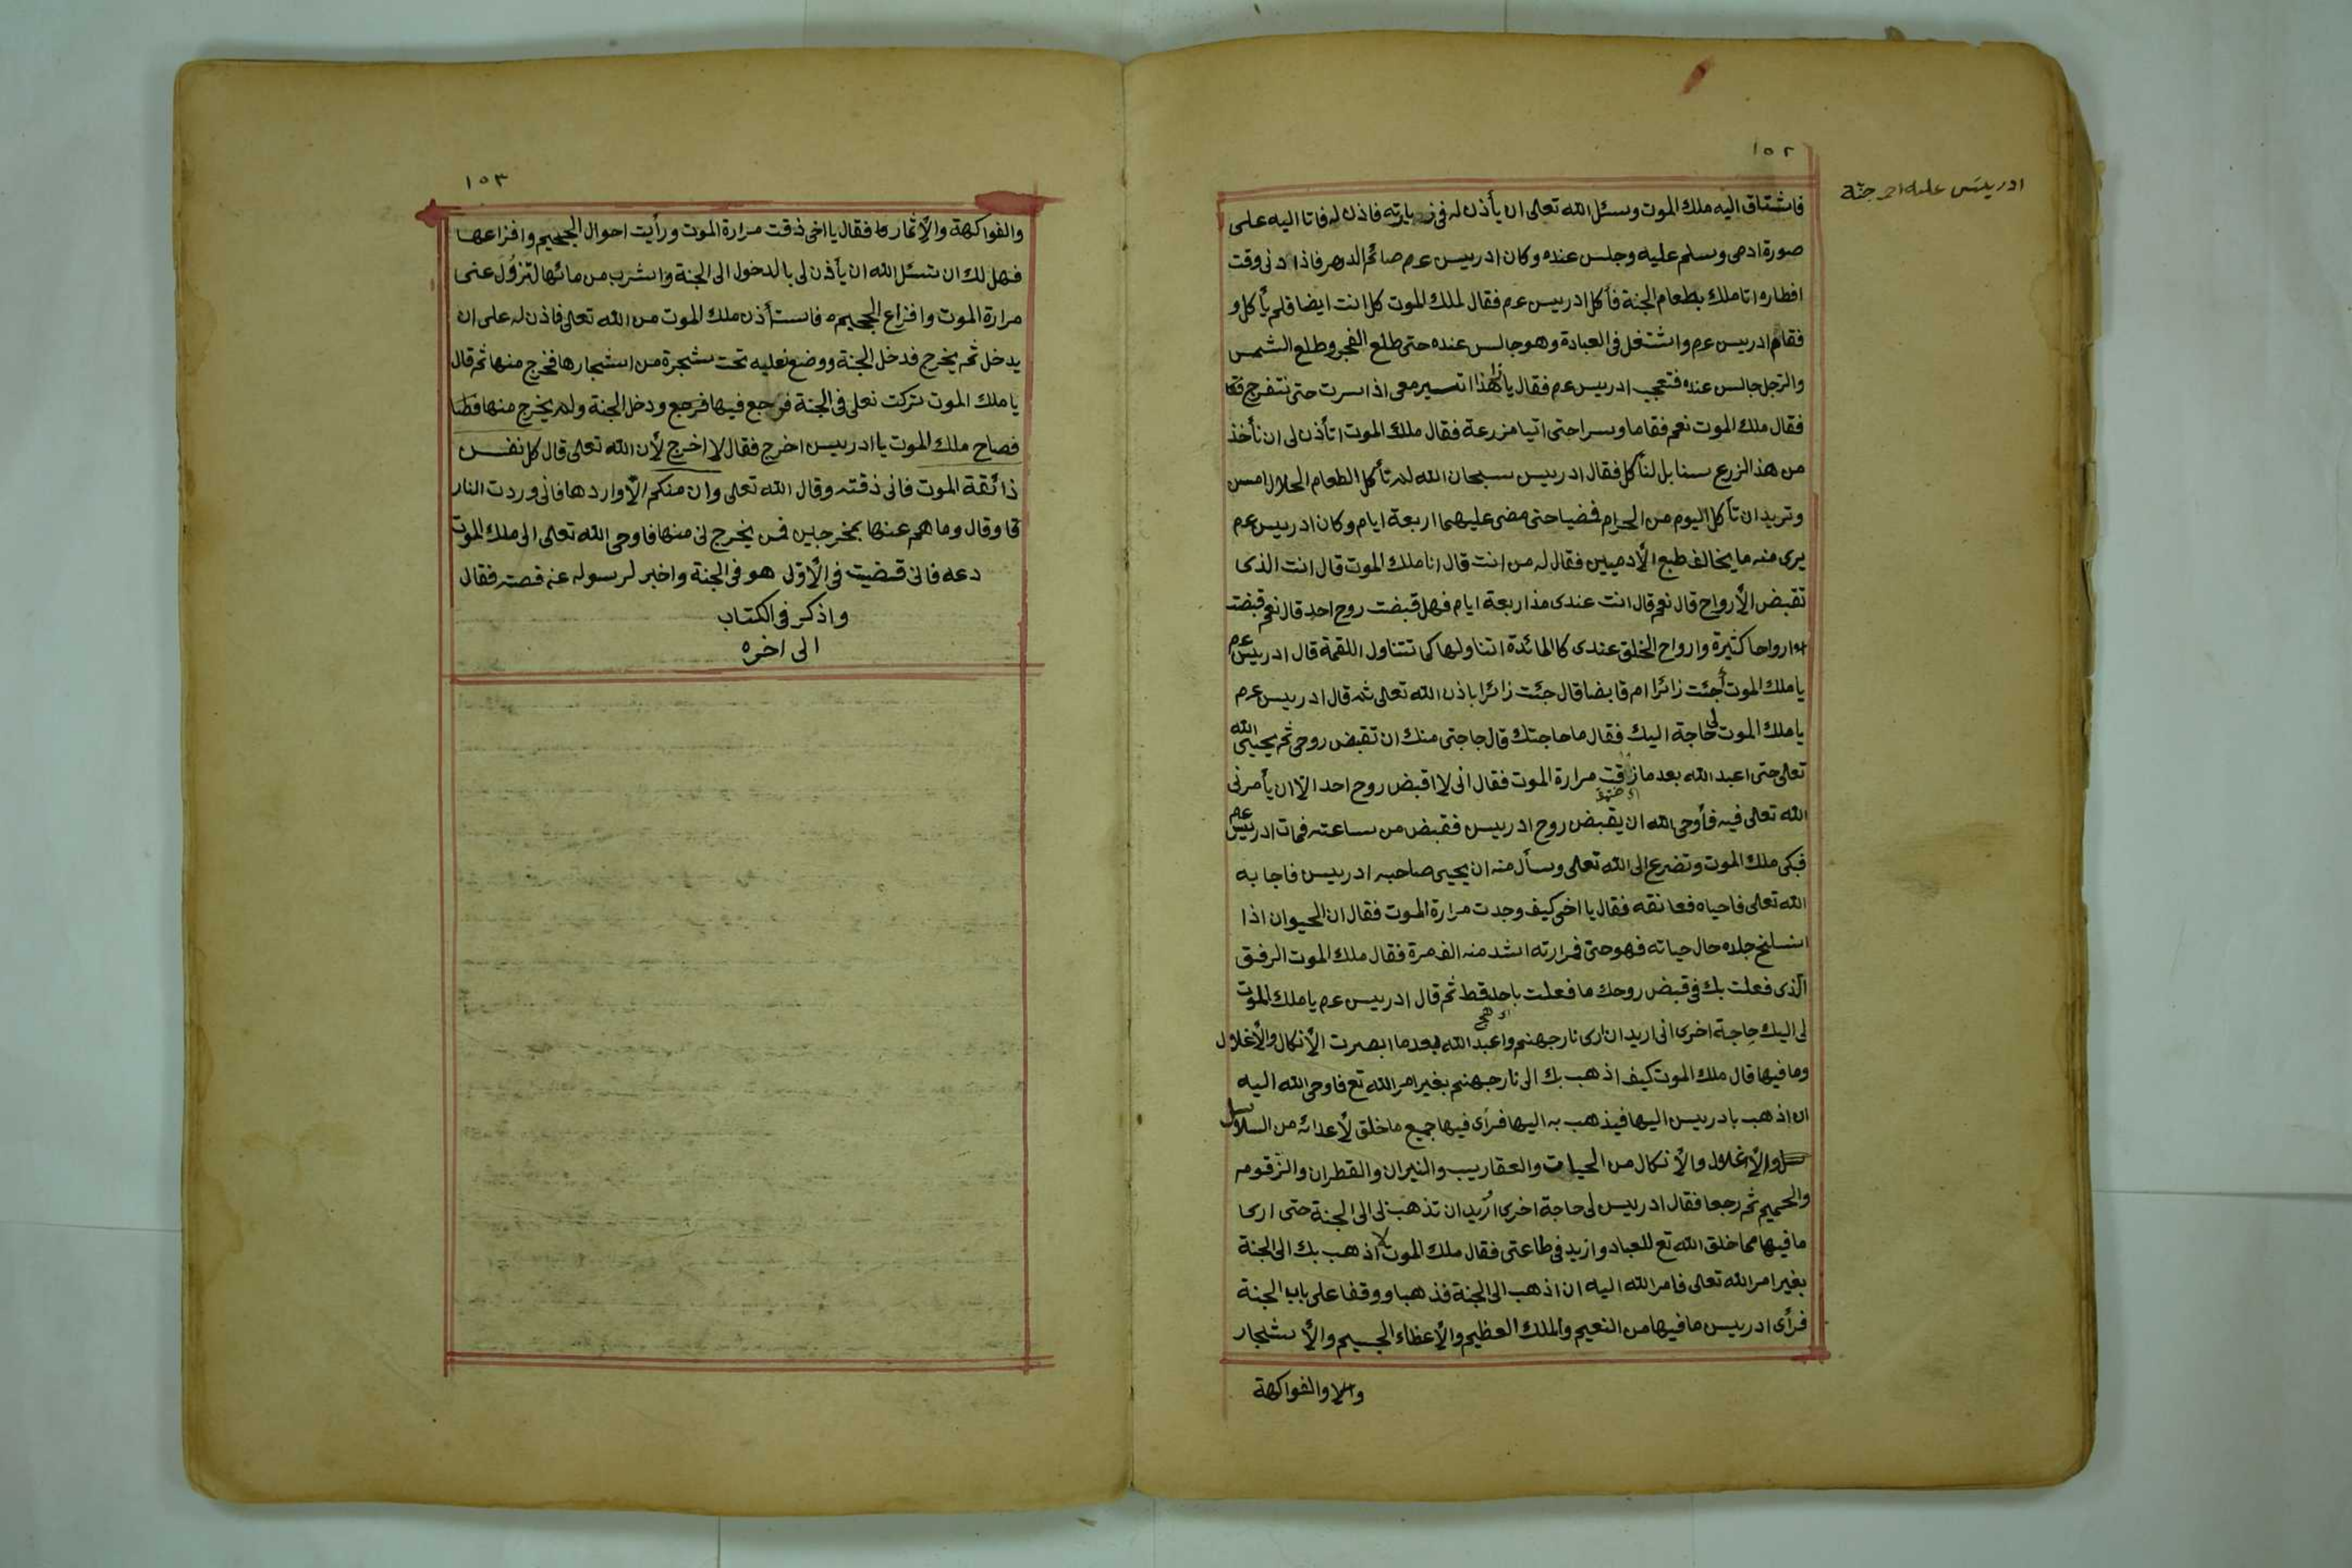 ١٥٢
ادريس جنة
فاشتاق اليه ملك الموت وسئل الله تعالى ان يأذن له فى زيارته فاذن له فاتا اليه على
صورة ادمى وسلم عليه وجلس عنده وكان ادريس عم صائم الدهر فاذا دنى وقت
افطاره اتا ملك بطعام الجنة فأكل ادريس عم فقال لملك الموت كل انت ايضا فلم يأكل و
فقام ادريس عم واشتغل فى العبادة وهو جالس عنده حتى طلع الفجر وطلع الشمس
والرجل جالس عنده فتعجب ادريس عم فقال يا هذا اتسير معى اذا سرت حتى نتفرج فقا
فقال ملك الموت نعم فقاما وسرا حتى اتيا مزرعة فقال ملك الموت اتأذن لى ان نأخذ
من هذ الزرع سنابل لنأكل فقال ادريس سبحان الله لم تأكل الطعام الحلال امس
وتريد ان تأكل اليوم من الحرام فضيا حتى مضى عليهما اربعة ايام وكان ادريس عم
يرى منه ما يخالف طبع الأدميين فقال له من انت قال انا ملك الموت قال انت الذى
تقبض الأرواح قال نعم قال انت عندى مذ اربعة ايام فهل قبضت روح احد قال نعم قبضت
ارواحا كثيرة وارواح الخلق عندى كالمائدة اتناولها كما تتناول اللقمة قال ادريس عم
يا ملك الموت أجئت زائرا ام قابضا قال جئت زائرا باذن الله تعالى ثم قال ادريس عم
يا ملك الموت لى حاجة اليك فقال ما حاجتك قال حاجتى منك ان تقبض روحى ثم يحيينى الله
تعالى حتى اعبد الله بعد ما زقت مرارة الموت فقال انى لا اقبض روح احد الا ان يأمرنى
الله تعالى فيه فأوحى الله ان يقبض روح ادريس فقبض من ساعته فمات ادريس عم
فبكى ملك الموت وتضرع الى الله تعالى وسأل منه ان يحيى صاحبه ادريس فاجابه
الله تعالى فاحياه فعانقه فقال يا اخى كيف وجدت مرارة الموت فقال ان الحيوان اذا
انسلخ جلده حال حياته فهو حتى فمرارته اشد منه الف مرة فقال ملك الموت الرفق
الذى فعلت بك فى قبض روحك ما فعلت باحد قط ثم قال ادريس عم يا ملك الموت
لى اليك حاجة اخرى انى اريد ان ارى نار جهنم واعبد الله بعد ما ابصرت الأنكال والأغلال
وما فيها قال ملك الموت كيف اذهب بك الى نار جهنم بغير امر الله تع فاوحى الله اليه
ان اذهب بادريس اليها فيذهب به اليها فرأى فيها جميع ما خلق لأعدائه من السلاسل
والأغلال والأنكال من الحيات والعقاريب والنيران والقطران والزقوم
والحميم ثم رجعا فقال ادريس لى حاجة اخرى اُريد ان تذهب لى الى الجنة حتى ارى
ما فيها مما خلق الله تع للعباد وازيد فى طاعتى فقال ملك الموت لا اذهب بك الى الجنة
بغير امر الله تعالى فامر الله اليه ان اذهب الى الجنة فذهبا ووقفا على باب الجنة
فرأى ادريس ما فيها من النعيم والملك العظيم والأعطاء الجسيم والأشجار
والا والفواكهة
١٥٣
والفواكهة والأثمار فقال يا اخى ذقت مرارة الموت ورأيت احوال الجحيم وافزاعها
فهل لك ان تسئل الله ان يأذن لى بالدخول الى الجنة واشرب من مائها لتزول عنى
مرارة الموت وافزاع الجحيم فاستأذن ملك الموت من الله تعالى فاذن له على ان
يدخل ثم يخرج فدخل الجنة ووضع نعليه تحت شجرة من اشجارها فخرج منها ثم قال
يا ملك الموت تركت نعلى فى الجنة فرجع فيها فرجع ودخل الجنة ولم يخرج منها
فصاح ملك الموت يا ادريس اخرج فقال لا اخرج لأن الله تعالى قال كل نفس
ذائقة الموت فانى ذقته وقال الله تعالى وان منكم الا واردها فانى وردت النار
قا وقال وما هم عنها بمخرجين فمن يخرج لى منها فاوحى الله تعالى الى ملك الموت
دعه فانى قضيت فى الأول هو فى الجنة واخبر لرسوله عنه قصته فقال
واذكر فى الكتاب
الى اخره